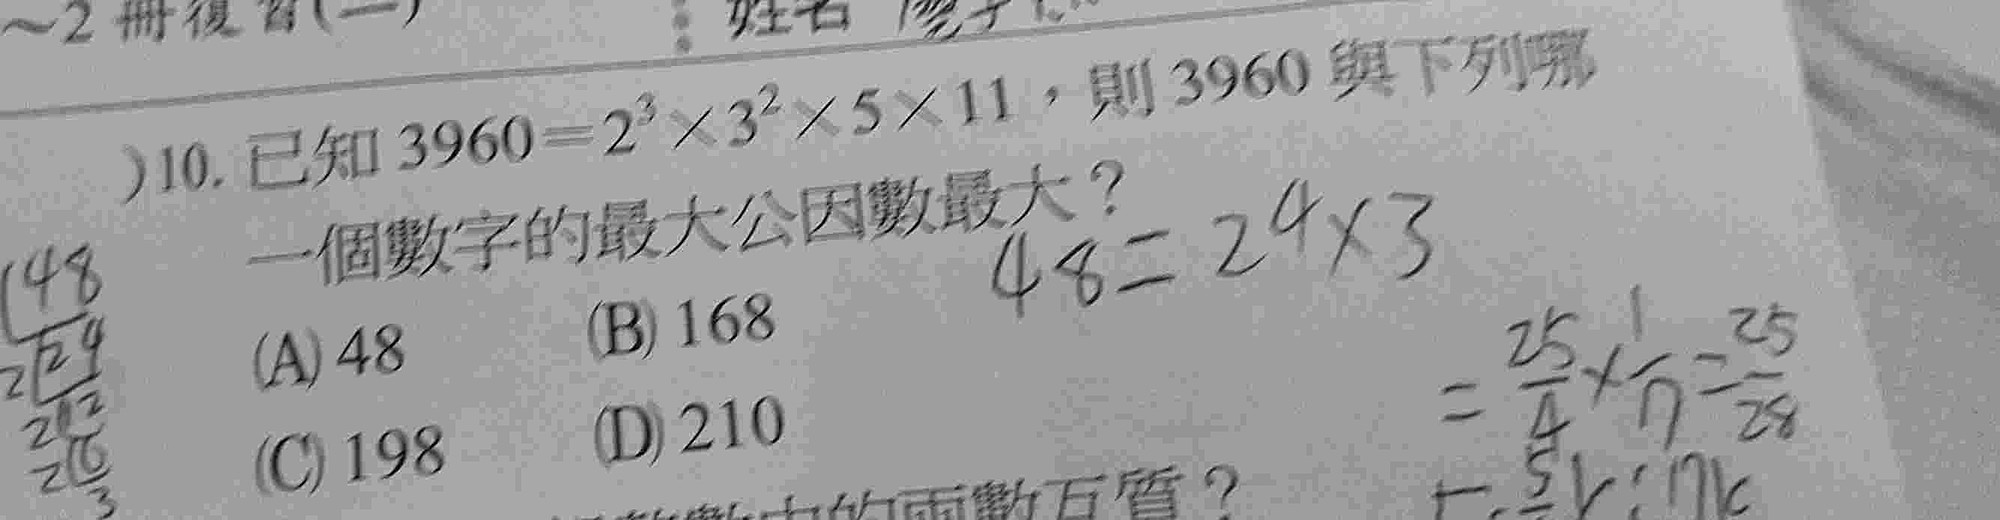 ~2 冊複習(二)
姓名
)10. 已知 3960=2³×3²×5×11，則 3960 與下列哪
一個數字的最大公因數最大？
48=2⁴×3
(A) 48 (B) 168
(C) 198 (D) 210
48
2 24
2 12
2 6
3
= 25/4 × 1/7 = 25/28
數中的兩數互質？